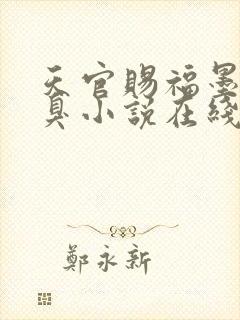 天官賜福墨
臭小說在綫
鄭永新